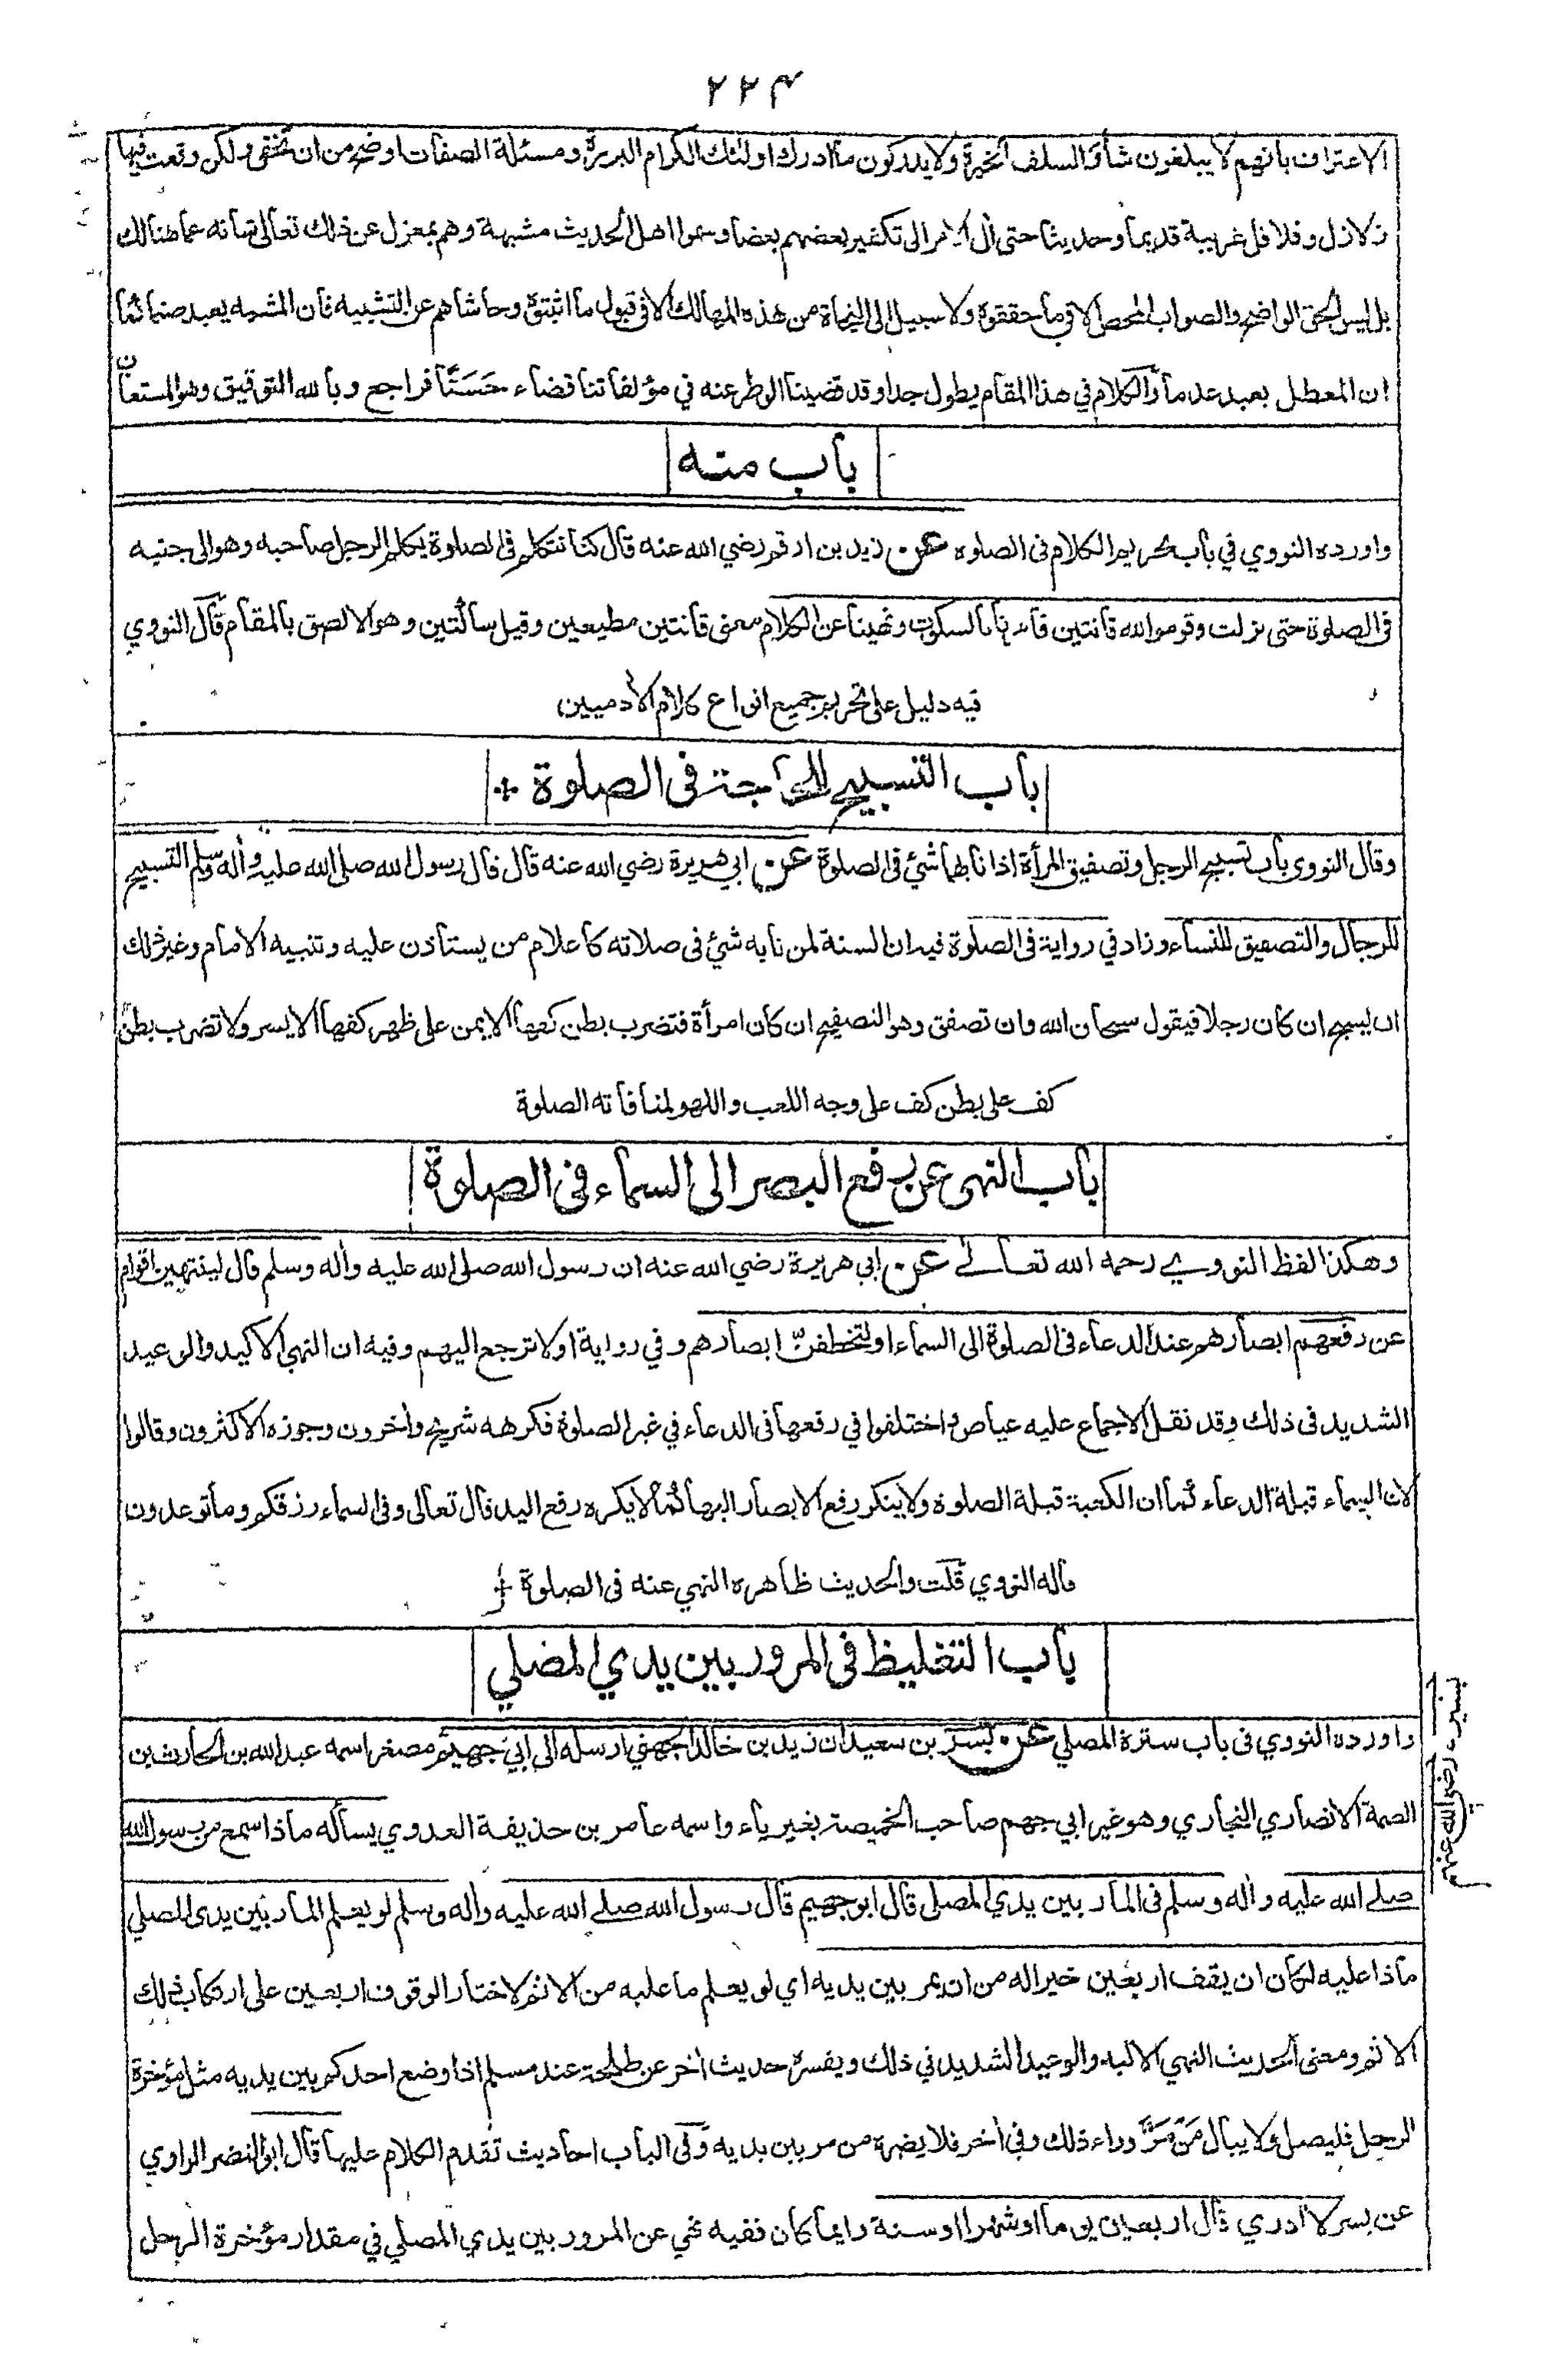 ٢٢٤
الاعتراف بانهم لا يبلغون شأو السلف الخيرة ولا يدركون ما ادرك اولئك الكرام البررة ومسئلة الصفات اوضح من ان تخفى ولكن وقعت فيها
زلازل وقلاقل غريبة قديما وحديثا حتى آل الامر الى تكفير بعضهم بعضا وسموا اهل الحديث مشبهة وهم بمعزل عن ذلك تعالى شانه عما هنالك
بل ليس الحق الواضح والصواب المحض الا في ما حققوه ولا سبيل الى النجاة من هذه المهالك الا في قبول ما اثبتوه وحاشاهم عن التشبيه فان المشبه يعبد صنما كما
ان المعطل يعبد عدما والكلام في هذا المقام يطول جدا وقد قضينا الوطر عنه في مؤلفاتنا قضاء حَسَنًا فراجع وبالله التوفيق وهو المستعان
باب منه
واورده النووي في باب تحريم الكلام فى الصلوة عن زيد بن ارقم رضي الله عنه قال كنا نتكلم فى الصلوة يكلم الرجل صاحبه وهو الى جنبه
فى الصلوة حتى نزلت وقوموا لله قانتين فامرنا بالسكوت ونهينا عن الكلام معنى قانتين مطيعين وقيل ساكتين وهو الالصق بالمقام قال النووي
فيه دليل على تحريم جميع انواع كلام الآدميين
باب التسبيح للحاجة فى الصلوة
وقال النووي باب تسبيح الرجل وتصفيق المرأة اذا نابهما شئ فى الصلوة عن ابي هريرة رضي الله عنه قال قال رسول الله صلى الله عليه وآله وسلم التسبيح
للرجال والتصفيق للنساء وزاد في رواية فى الصلوة فيه ان السنة لمن نابه شئ فى صلاته كاعلام من يستأذن عليه وتنبيه الامام وغير ذلك
ان يسبح ان كان رجلا فيقول سبحان الله وان تصفق وهو التصفيح ان كان امرأة فتضرب بطن كفها الايمن على ظهر كفها الايسر ولا تضرب بطن
كف على بطن كف على وجه اللعب واللهو لمنافاته الصلوة
باب النهى عن رفع البصر الى السماء فى الصلوة
وهكذا لفظ النووي رحمه الله تعالى عن ابي هريرة رضي الله عنه ان رسول الله صلى الله عليه وآله وسلم قال لينتهين اقوام
عن رفعهم ابصارهم عند الدعاء فى الصلوة الى السماء او لتخطفنّ ابصارهم وفي رواية او لا ترجع اليهم وفيه ان النهي الاكيد والوعيد
الشديد فى ذلك وقد نقل الاجماع عليه عياض واختلفوا في رفعها فى الدعاء في غير الصلوة فكرهه شريح وآخرون وجوزه الاكثرون وقالوا
لان السماء قبلة الدعاء كما ان الكعبة قبلة الصلوة ولا ينكر رفع الابصار اليها كما لا يكره رفع اليد قال تعالى وفى السماء رزقكم وما توعدون
قاله النووي قلت والحديث ظاهره النهي عنه فى الصلوة
باب التغليظ فى المرور بين يدي المصلي
واورده النووي فى باب سترة المصلي عن بسر بن سعيد ان زيد بن خالد الجهني ارسله الى ابي جهيم مصغر اسمه عبد الله بن الحارث بن
الصمة الانصاري النجاري وهو غير ابي جهم صاحب الخميصة بغير ياء واسمه عامر بن حذيفة العدوي يسأله ماذا سمع من رسول الله
صلى الله عليه وآله وسلم فى المار بين يدي المصلى قال ابو جهيم قال رسول الله صلى الله عليه وآله وسلم لو يعلم المار بين يدى المصلي
ماذا عليه لكان ان يقف اربعين خيرا له من ان يمر بين يديه اي لو يعلم ما عليه من الاثم لاختار الوقوف اربعين على ارتكاب ذلك
الاثم ومعنى الحديث النهي الاكيد والوعيد الشديد في ذلك ويفسره حديث آخر عن طلحة عند مسلم اذا وضع احدكم بين يديه مثل مؤخرة
الرحل فليصل ولا يبال مَنْ مَرَّ وراء ذلك وفي آخر فلا يضره من مر بين يديه وفى الباب احاديث تقدم الكلام عليها قال ابو النضر الراوي
عن بسر لا ادري قال اربعين يوما او شهرا او سنة وايما كان ففيه نهي عن المرور بين يدي المصلي في مقدار مؤخرة الرحل